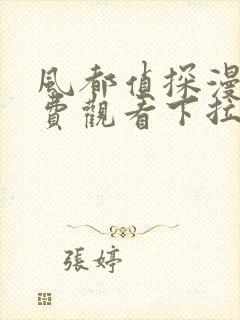 風都偵探漫
費觀看下拉
張婷